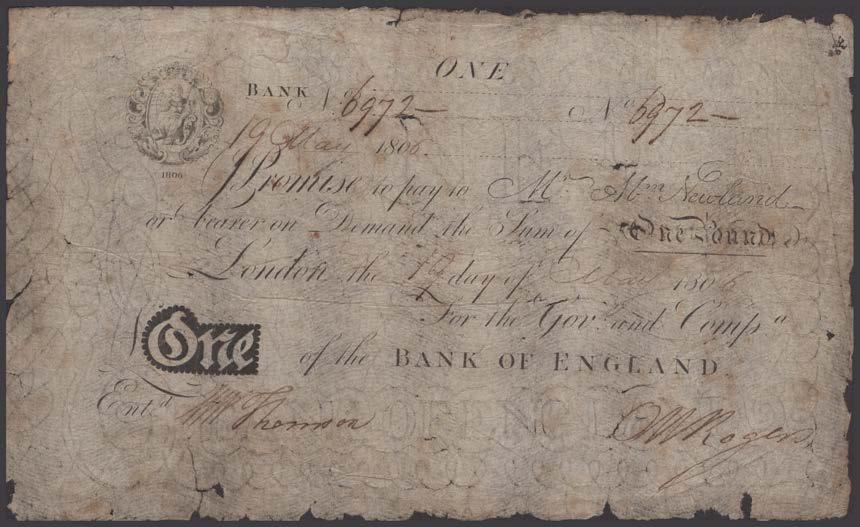 ONE
BANK No 6972– No 6972–
19 May 1806
1806
Promise to pay to Mr. Abm. Newland
or bearer on Demand the Sum of One Pound
London the 19 day of May 1806
For the Govr. and Compa.
One
of the BANK OF ENGLAND
Entd. Thomson
Rogers